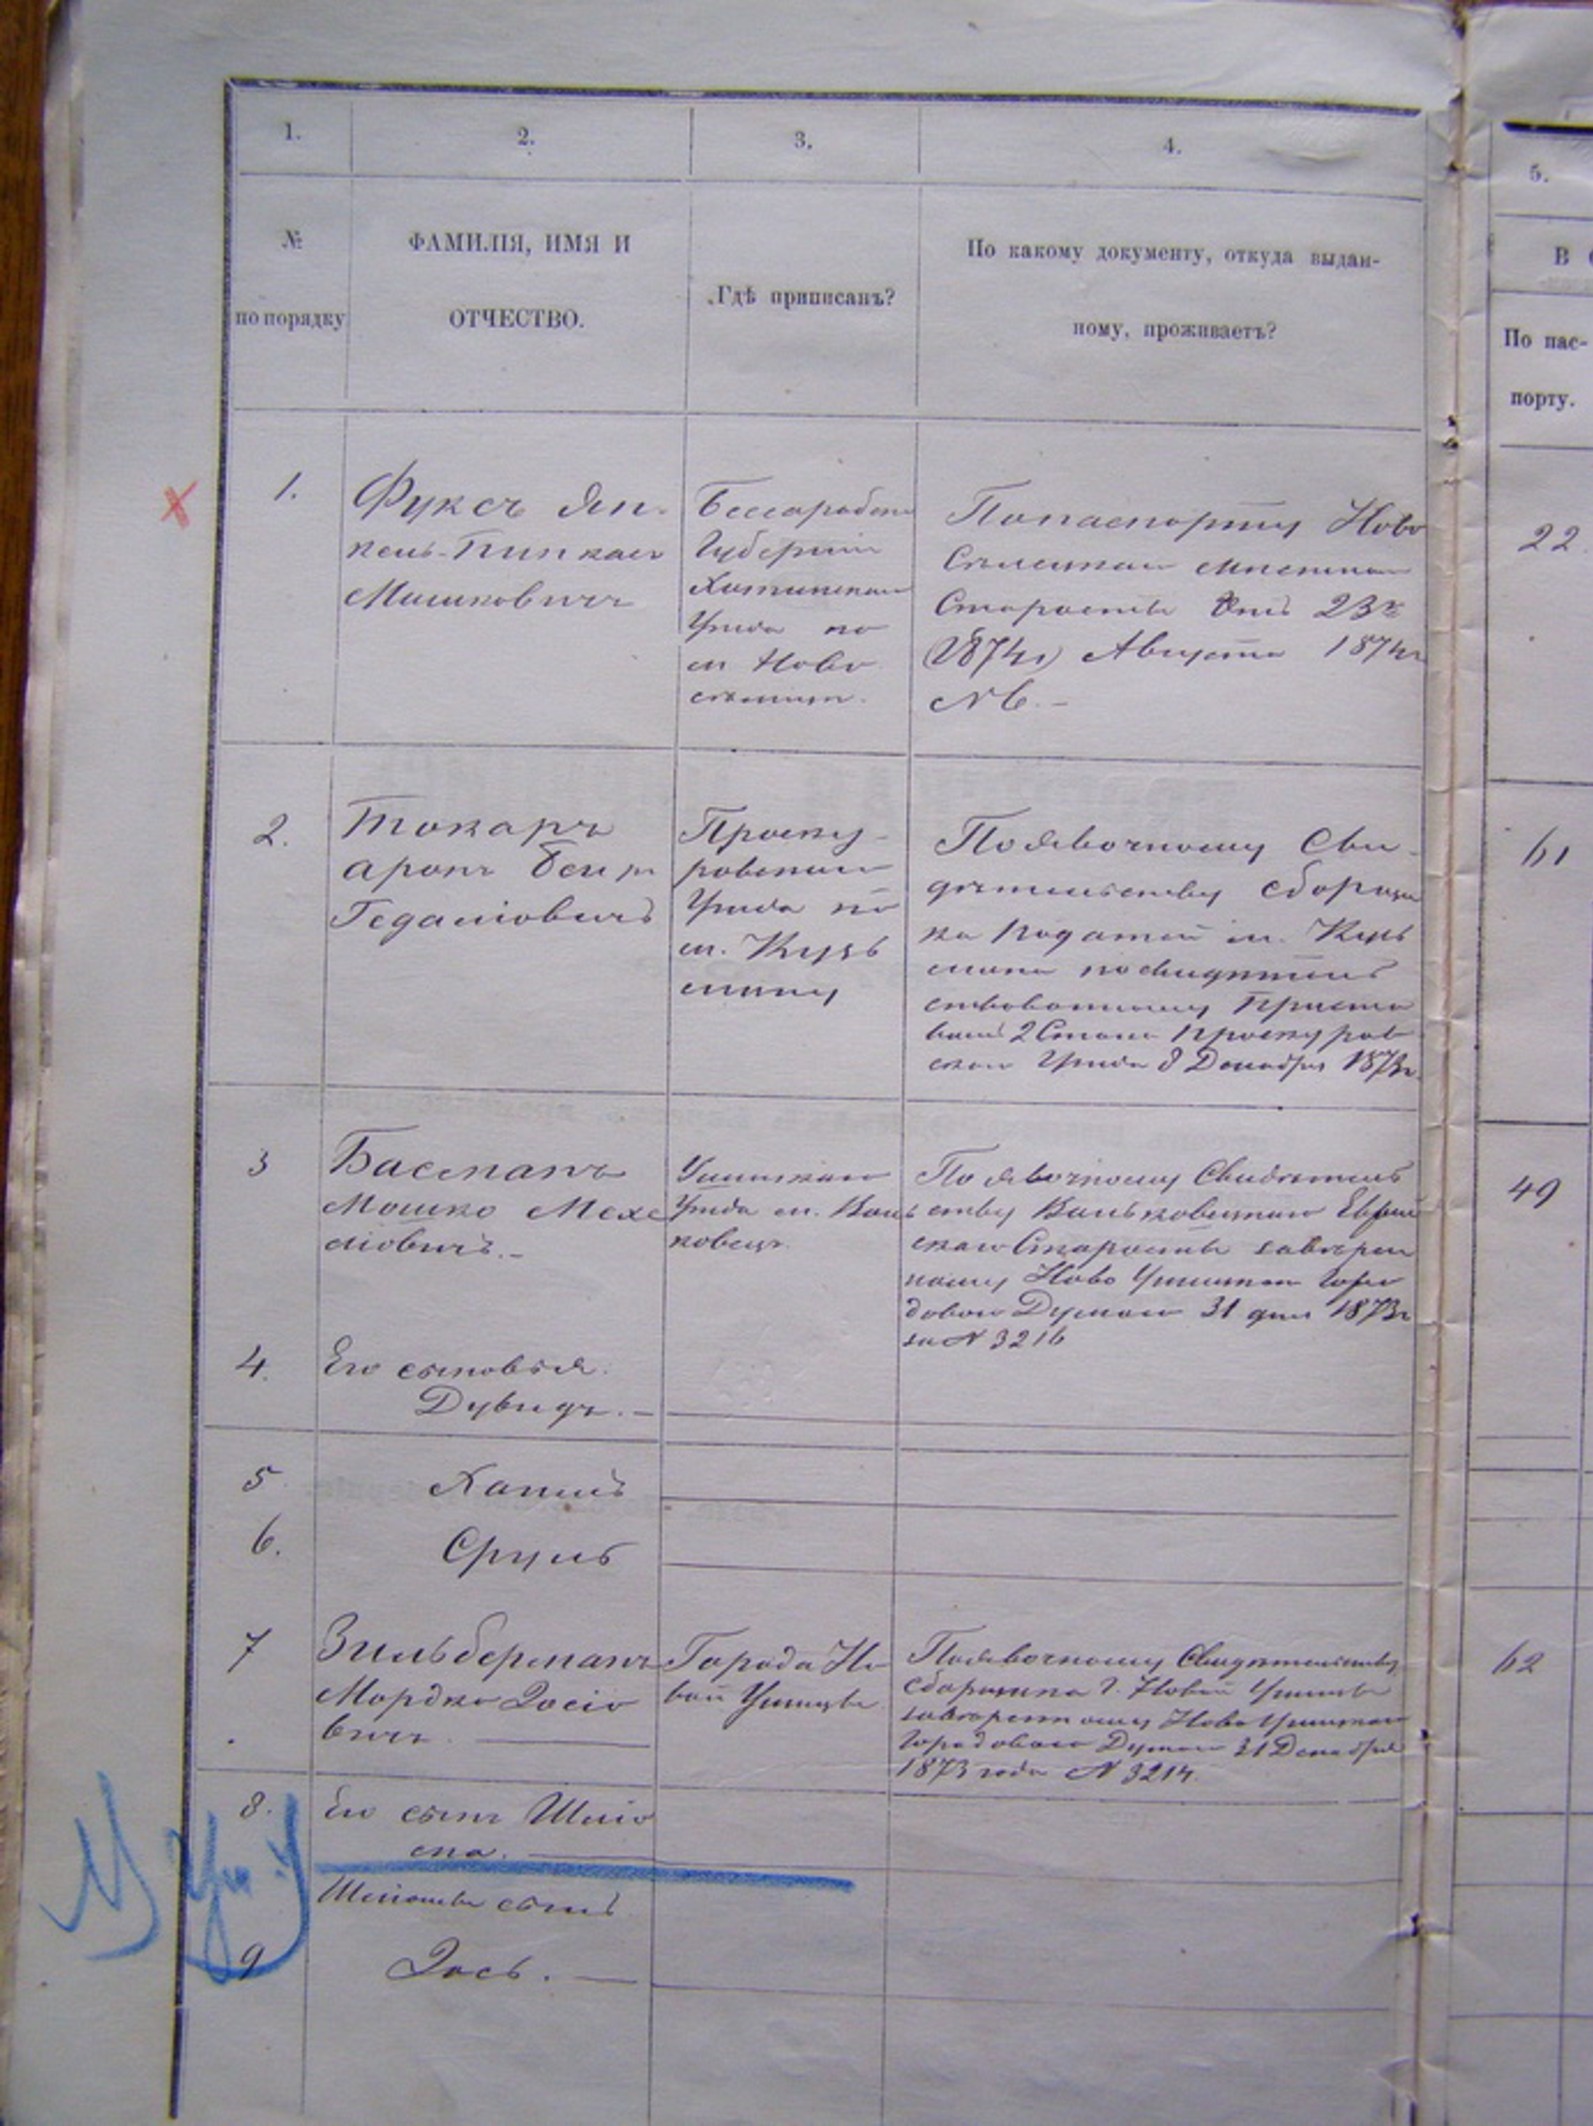 1. 2. 3. 4. 5.
№ по порядку
ФАМИЛІЯ, ИМЯ И
ОТЧЕСТВО.
Гдѣ приписанъ?
По какому документу, откуда выдан-
ному, проживаетъ?
В
По пас-
порту.
1.
Фуксъ Ян-
кель-Пинкас
Мошковичъ
Бессарабской
Губерніи
Хотинскаго
Уѣзда по
м Ново
селицы.
По паспорту Ново
Селицкаго мѣстнаго
Старосты 23го
(1874г) Августа 1874г
№ 6.-
22.
2.
Токарь
Аронъ Бенъ
Гедаліовичъ
Проску-
ровскаго
Уѣзда по
м. Кузь
мину
По явочному Сви-
дѣтельству сборщи
ка податей м. Кузь
мина посвидѣтель
ствованному Приста
вомъ 2 Стана Проскуров
скаго Уѣзда 8 Декабря 1873г.
61
3
Басманъ
Мошко Мехе
ліовичъ.-
Ушицкаго
Уѣзда м. Вонь
ковецъ.
По явочному Свидѣтель
ству Воньковецкаго Еврей
скаго Старосты завѣрен
ному Ново Ушицкою Горо
довою Думою 31 дня 1873г
за № 3216
49
4.
Его сыновья:
Дувидъ.-
5
Хаимъ
6.
Сруль
7
Зильберманъ
Мордко Іосіо
вичъ.
Города Но
вой Ушицы
По явочному Свидѣтельству
сборщика г. Новой Ушицы
завѣренному Ново Ушицкою
Городовою Думою 31 Декабря
1873 года № 3214.
62
8.
Его сынъ Шліо
ма.
Шліомы сынъ
9
Іось.